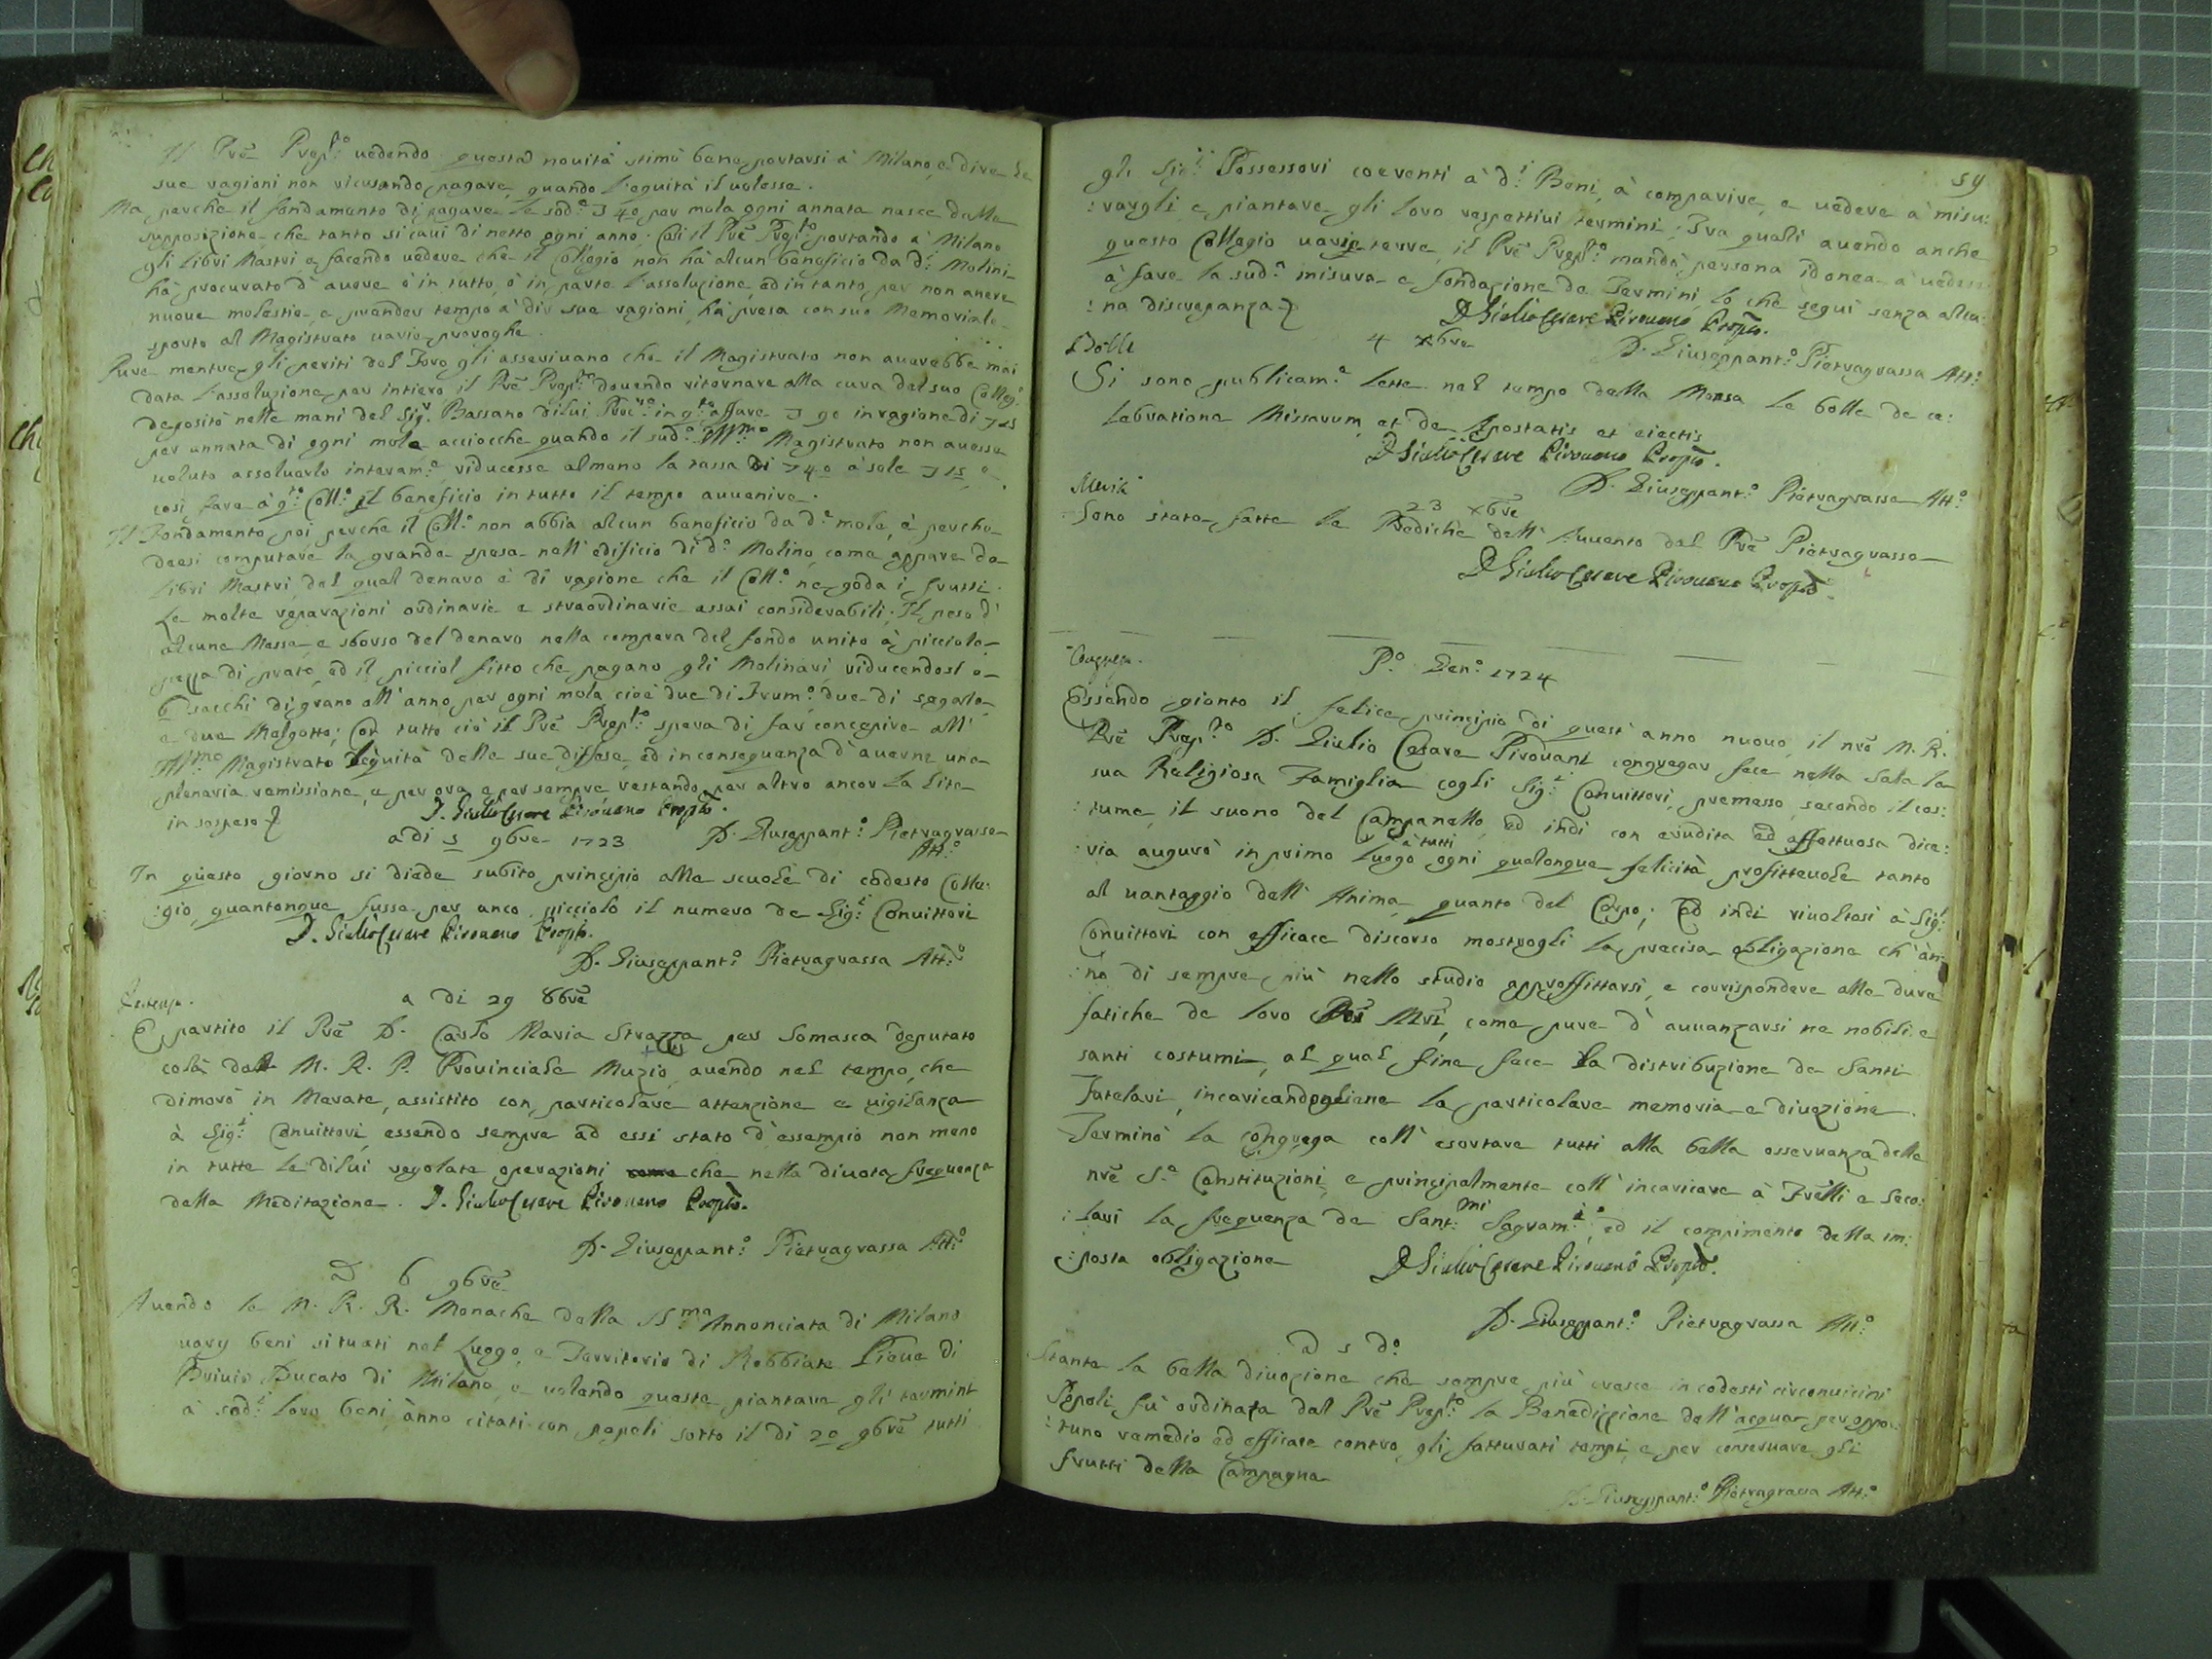 Il Prẽ Prep.to uedendo questa nouità stimò bene portarsi à Milano, e dire le
sue ragioni non ricusando pagare, quando l'equità il uolesse.
Ma perche il fondamento di pagare le sod.e 40 per mola ogni annata nasce dalla
supposizione che tanto si caui di netto ogni anno; Così il Prẽ Prep.to portando à Milano
gli libri Mastri e facendo uedere che il Collegio non hà alcun beneficio da d.i Molini
hà procurato d'auere ò in tutto, ò in parte l'assoluzione, ed in tanto per non auere
nuoue molestie, e prender tempo à dir sue ragioni, hà presa con suo Memoriale
sporto al Magistrato uarie proroghe.
Pure mentre gli periti del Foro gli asseriuano che il Magistrato non auerebbe mai
data l'assoluzione per intiero il Prẽ Prep.to douendo ritornare alla cura del suo Colleg.o
depositò nelle mani del Sig.r Bassano di lui Proc.re in q.to affare 90 in ragione di 15
per annata di ogni mola acciocche quando il sud.o Ill.mo Magistrato non auesse
uoluto assoluerlo interam.e riducesse almeno la tassa di 40 à sole 15, e
così fare à q.to Coll.o il beneficio in tutto il tempo auuenire.
Il Fondamento poi perche il Coll.o non abbia alcun beneficio da d.e mole, è perche
deesi computare la grande spesa nell'edificio di d.o Molino, come appare da
libri Mastri, del qual denaro è di ragione che il Coll.o ne goda i frutti.
Le molte reparazioni ordinarie e straordinarie assai considerabili; Il peso d'
alcune Messe e sborso del denaro nella compera del fondo unito à picciola
pezza di prato, ed il picciol fitto che pagano gli Molinari, riducendosi à
6 sacchi di grano all'anno per ogni mola cioè due di Frum.o due di segale,
e due Melgotto; Con tutto ciò il Prẽ Prep.to spera di far concepire all'
Ill.mo Magistrato l'equità delle sue difese, ed in conseguenza d'auerne una
plenaria remissione, e per ora, e per sempre restando per altro ancor la lite
in sospeso
D. Giulio Cesare Pirouano Prepto.
adi 5 9bre 1723
D. Giuseppant.o Pietragrassa
Att.o
In questo giorno si diede subito principio alle scuole di codesto Colle:
:gio, quantonque fusse per anco picciolo il numero de Sig.i Conuittori
D. Giulio Cesare Pirouano Prepto.
D. Giuseppant.o Pietragrassa Att.o
a di 29 8bre
È partito il Prẽ D. Carlo Maria Strazza per Somasca deputato
colà dal M. R. P. Prouinciale Muzio, auendo nel tempo, che
dimorò in Merate, assistito con particolare attenzione e uigilanza
à Sig.i Conuittori, essendo sempre ad essi stato d'essempio non meno
in tutte le di lui regolate operazioni che nella diuota frequenza
della Meditazione. D. Giulio Cesare Pirouano Prepto.
D. Giuseppant.o Pietragrassa Att.o
D 6 9bre
Auendo le M. R. R. Monache della SS.ma Annonciata di Milano
uary beni situati nel Luogo, e Territorio di Robbiate Pieue di
Briuio Ducato di Milano, e uolendo queste piantare gli termini
à sod.i loro beni, ànno citati con papeli sotto il di 20 9bre tutti
59
gli Sig.i Possessori coerenti à d.i Beni, à comparire, e uedere à misu:
:rargli e piantare gli loro respettiui termini; Fra quali auendo anche
questo Collegio uarie terre, il Prẽ Prep.to mandò persona idonea à uedere
à fare la sud.a misura e fondazione de Termini, lo che seguì senza alcu:
:na discrepanza
D Giulio Cesare Pirouano Prepto.
D. Giuseppant.o Pietragrassa Att.o
Bolle
4 Xbre
Si sono publicam.e lette nel tempo della Mensa le bolle de ce:
lebratione Missarum, et de Apostatis et eiectis
D Giulio Cesare Pirouano Prepto.
D. Giuseppant.o Pietragrassa Att.o
23 Xbre
Sono state fatte le Prediche dell'Auuento dal Prẽ Pietragrassa
D Giulio Cesare Pirouano Prepto.
Congrega.
P.o Gen.o 1724
Essendo gionto il felice principio di quest'anno nuouo, il nrõ M. R.
Prẽ Prep.to D. Giulio Cesare Pirouani congregar fece nella Sala la
sua Religiosa Famiglia cogli Sig.i Conuittori, premesso, secondo il cos:
:tume, il suono del Campanello, ed indi con erudita ed affettuosa dice:
:ria augurò in primo luogo à tutti ogni qualonque felicità profitteuole tanto
al uantaggio dell'Anima, quanto del Corpo; Ed indi riuoltosi à Sig.i
Conuittori con efficace discorso mostrogli la precisa obligazione ch'àn:
:no di sempre più nello studio approffittarsi, e corrispondere alle dure
fatiche de loro Prĩ Mrĩ, come pure d'auuanzarsi ne nobili e
santi costumi, al qual fine fece la distribuzione de Santi
Tutelari, incaricandogliene la particolare memoria e diuozione.
Terminò la congrega coll'esortare tutti alla bella osseruanza delle
nrẽ S.e Constituzioni, e principalmente coll'incaricare à Frẽlli e Seco:
:lari la frequenza de Sant.mi Sagram.i, ed il compimento della im:
:posta obligazione
D Giulio Cesare Pirouano Prepto.
D. Giuseppant.o Pietragrassa Att.o
D 5 d.o
Stante la bella diuozione che sempre più cresce in codesti circonuicini
Popoli fù ordinata dal Prẽ Prep.to la Benedizzione dell'acqua per oppor:
:tuno remedio ed efficace contro gli fatturati tempi, e per conseruare gli
frutti della Campagna
D. Giuseppant.o Pietragrassa Att.o